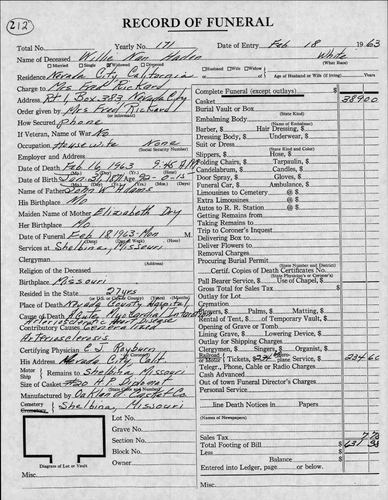 212
RECORD OF FUNERAL
Total No. Yearly No. 171 Date of Entry Feb 18 1963
Name of Deceased Willie Nan Haden White
Married Single Widowed Divorced Husband Wife Widow (What Race)
Residence Nevada City California Age of Husband or Wife (if living) Years
Charge to Mrs Fred Rickard
Address Rt 1 Box 383 Nevada City
Order given by Mrs Fred Rickard
How Secured Phone
If Veteran, Name of War No
Occupation Housewife None
(Social Security Number)
Employer and Address
Date of Death Feb 16 1963 9:45
Date of Birth Jan 31 1871 Age 92-0-15
Name of Father John W Adams
His Birthplace Mo
Maiden Name of Mother Elizabeth Dry
Her Birthplace Mo
Date of Funeral Feb 18 1963 - Mon M
Services at Shelbina, Missouri
Clergyman
(Address)
Religion of the Deceased
Birthplace Missouri
Resided in the State 27 yrs
Place of Death Nevada County Hospital
Cause of Death Acute Myocardial
Arteriosclerotic Heart Disease
Contributory Causes Generalized
Arteriosclerosis
Certifying Physician
His Address Nevada City Calif
Motor Ship Remains to Shelbina, Missouri
Size of Casket
Manufactured by Oakland Casket Co.
Cemetery Shelbina, Missouri
Crematory
Lot No.
Grave No.
Section No.
Block No.
Owner
Diagram of Lot or Vault
Misc.
Complete Funeral (except outlays) $
Casket 389 00
Burial Vault or Box
(State Kind)
Embalming Body
(Name of Embalmer)
Barber, $ Hair Dressing, $
Dressing Body, $ Underwear, $
Suit or Dress
(State Kind and Color)
Slippers, $ Hose, $
Folding Chairs, $ Tarpaulin, $
Candelabrum, $ Candles, $
Door Spray, $ Gloves, $
Funeral Car, $ Ambulance, $
Limousines to Cemetery @ $
Extra Limousines @ $
Autos to R. R. Station @ $
Getting Remains from
Taking Remains to
Trip to Coroner's Inquest
Delivering Box to
Deliver Flowers to
Removal Charges
Procuring Burial Permit
Certif. Copies of Death Certificates No.
(State Physician's or Coroner's)
Pall Bearer Service, $ Use of Chapel, $
Gross Total for Sales Tax $
Outlay for Lot
Cremation
Flowers, $ Palms, $ Matting, $
Rental of Tent, $ of Temporary Vault, $
Opening of Grave or Tomb
Lining Grave, $ Lowering Device, $
Outlay for Shipping Charges
Clergyman, $ Singers, $ Organist, $
Railroad or Motor Tickets, $ Plane Service, $ 234 60
Telegr., Phone, Cable or Radio Charges
Cash Advanced
Out of town Funeral Director's Charges
Personal Service
line Death Notices in Papers
(Names of Newspapers)
Sales Tax
Total Footing of Bill $
Less
Balance $
Entered into Ledger, page or below.
Misc.